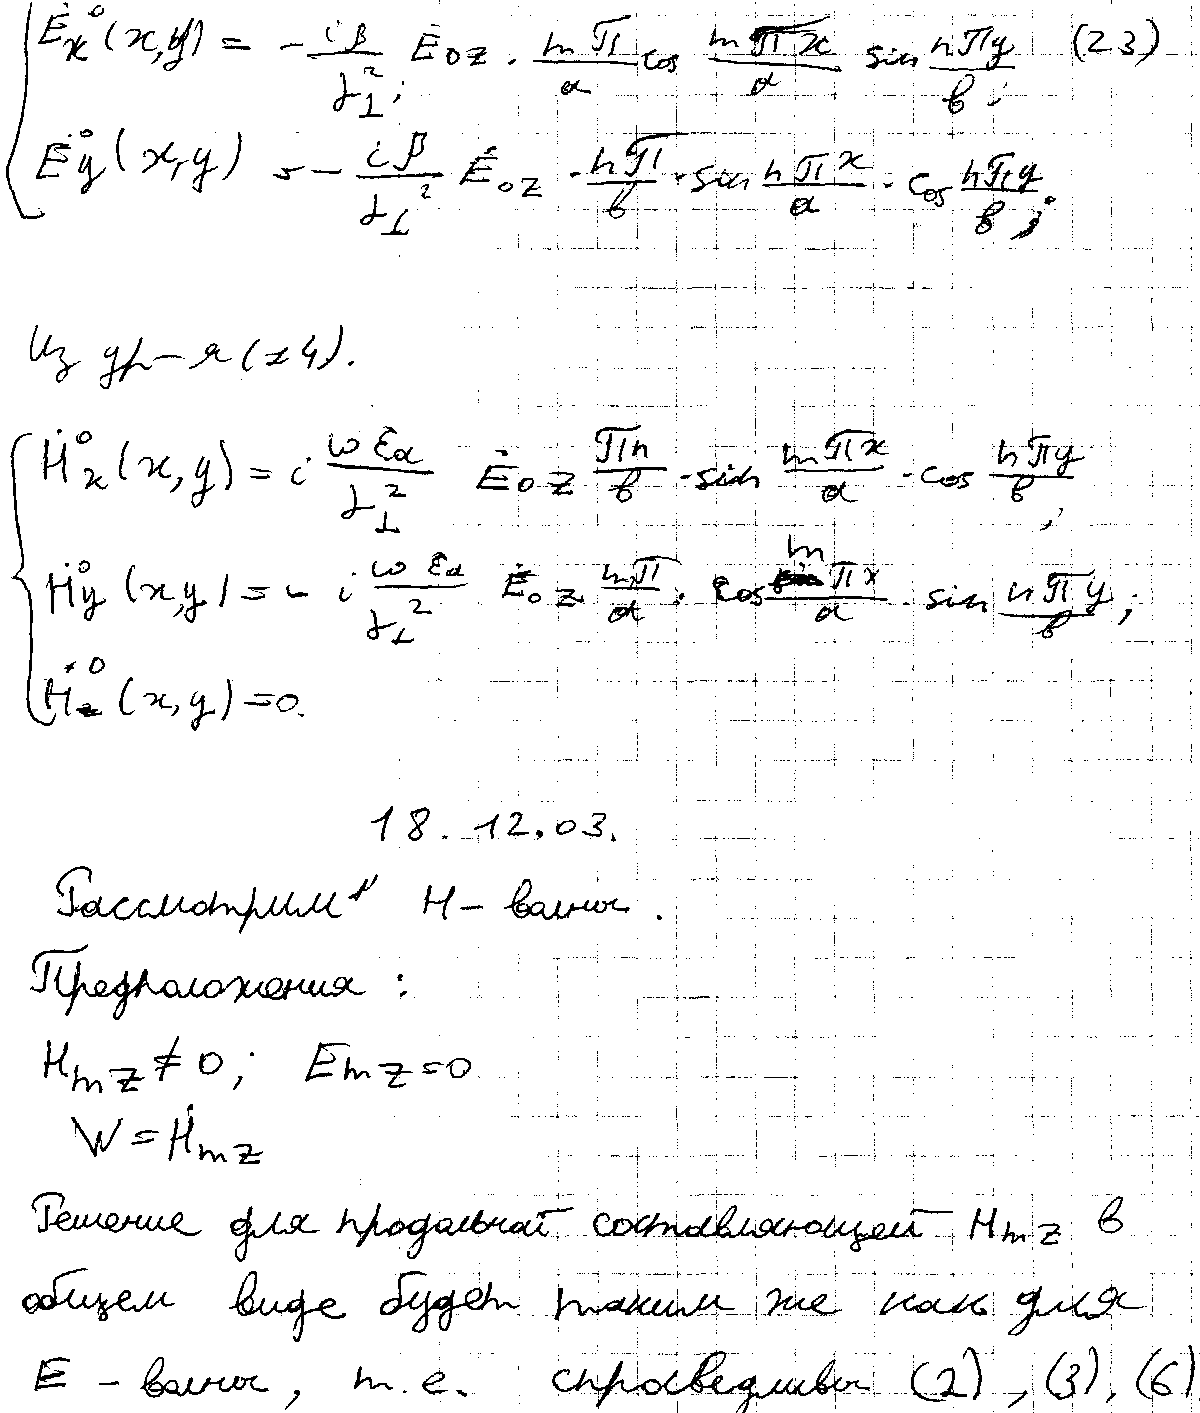 Ė⁰ₓ(x,y) = - iβ/γ⊥² ; Ė₀z · mπ/a cos mπx/a sin nπy/b ; (23)
Ė⁰y(x,y) = - iβ/γ⊥² Ė₀z · nπ/b · sin nπx/a · cos nπy/b ;
Из ур-я (24).
Ḣ⁰ₓ(x,y) = i ωεa/γ⊥² Ė₀z πn/b · sin mπx/a · cos nπy/b ;
Ḣ⁰y(x,y) = - i ωεa/γ⊥² Ė₀z mπ/a · cos mπx/a · sin nπy/b ;
Ḣ⁰z(x,y) = 0.
18.12.03.
Рассмотрим H - волны.
Предположения :
Hmz ≠ 0 ; Emz = 0
W = Ḣmz
Решение для продольной составляющей Hmz в
общем виде будет таким же как для
E - волны, т.е. справедливы (2), (3), (6)